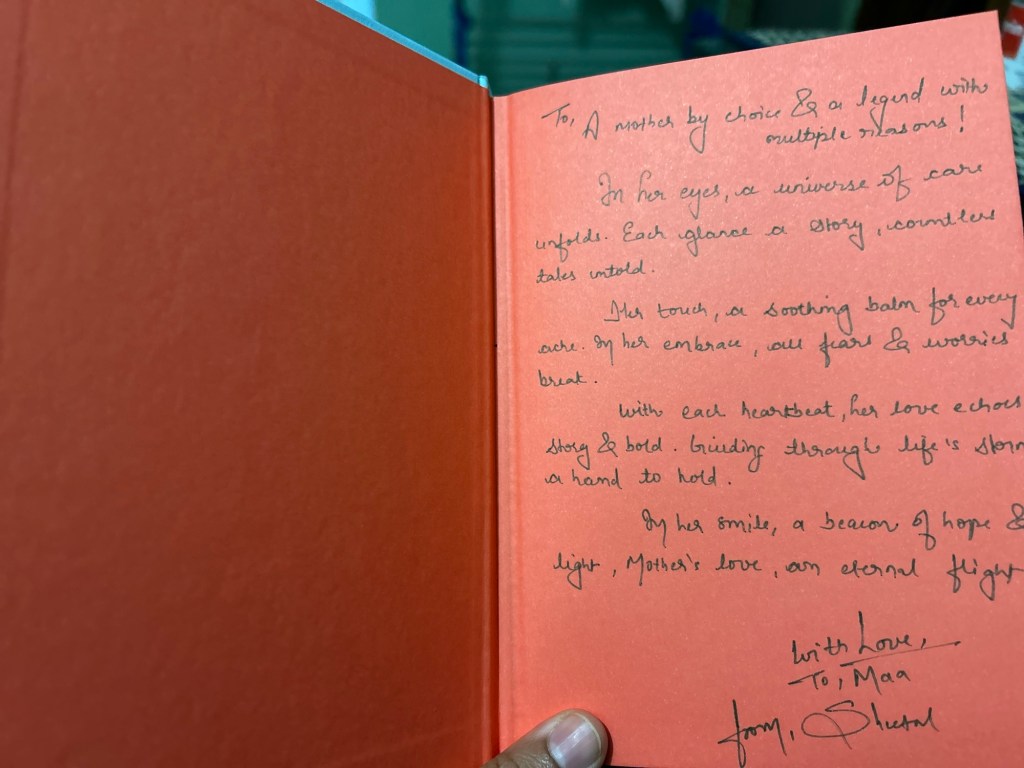 To, A mother by choice & a legend with
multiple reasons!
In her eyes, a universe of care
unfolds. Each glance a story, countless
tales untold.
Her touch, a soothing balm for every
ache. In her embrace, all fears & worries
break.
With each heartbeat, her love echoes
story & bold. Guiding through life's storm
a hand to hold.
In her smile, a beacon of hope &
light, Mother's love, an eternal flight
With Love,
To, Maa
from,